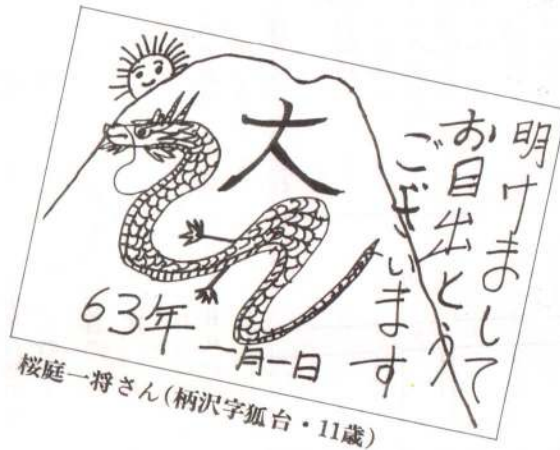 明けまして
お目出とう
ございます
大
63年
一月一日
桜庭一将さん(柄沢字狐台・11歳)